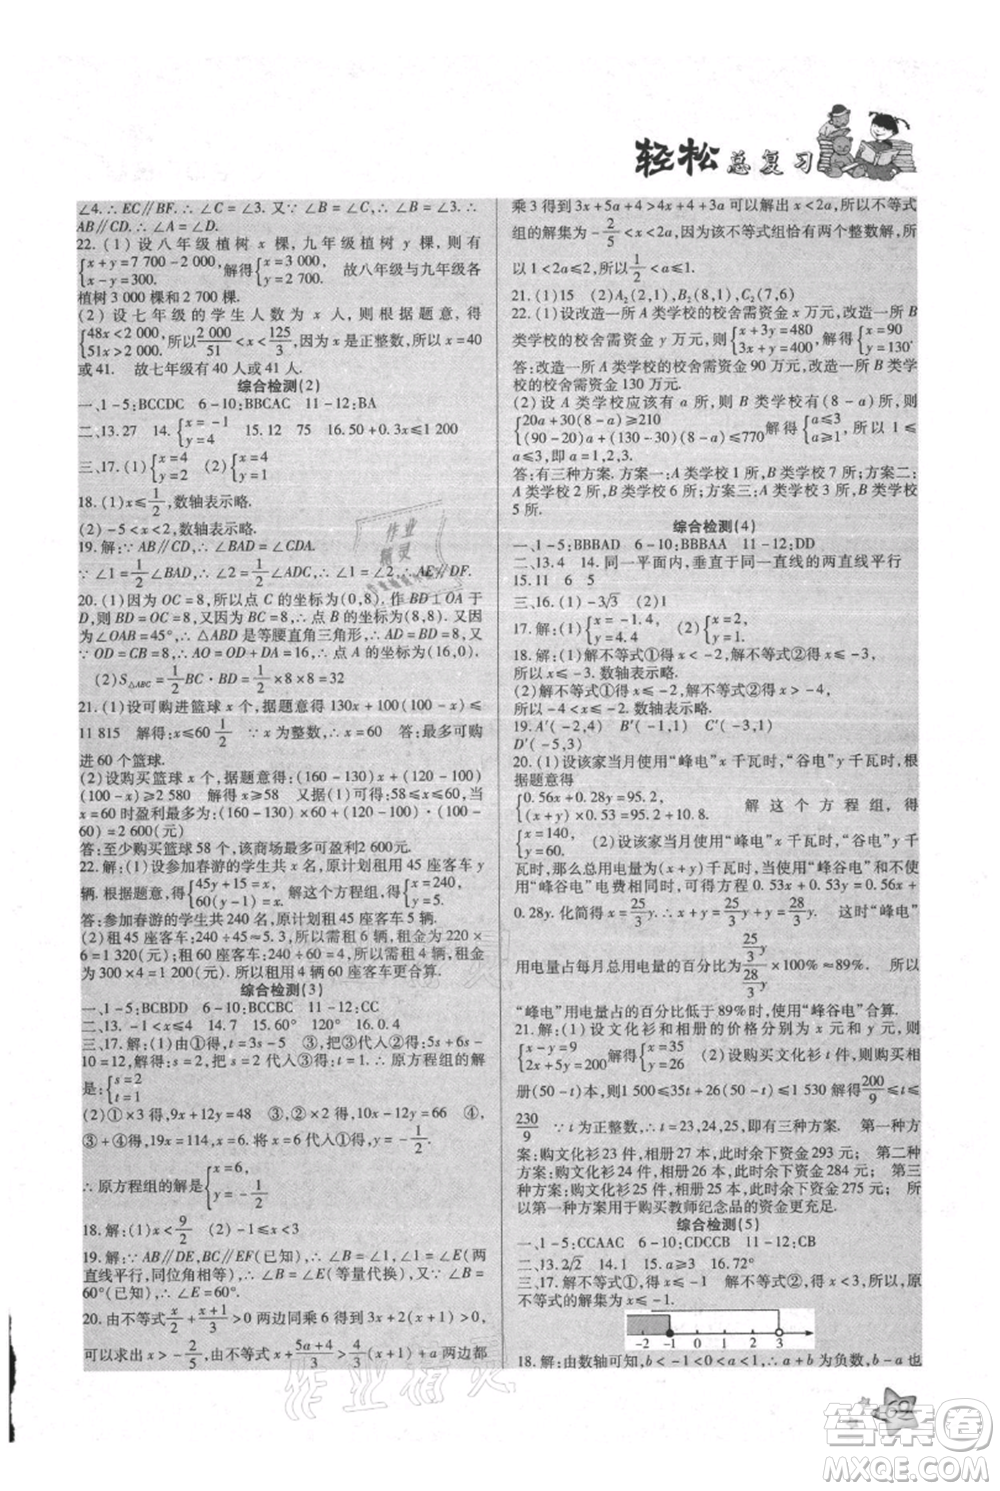 轻松总复习
∠4. ∴ EC∥BF. ∴ ∠C = ∠3. 又∵ ∠B = ∠C, ∴ ∠3 = ∠B. ∴
AB∥CD. ∴ ∠A = ∠D.
22. (1) 设八年级植树 x 棵, 九年级植树 y 棵, 则有
{x+y=7 700-2 000, x-y=300. 解得{x=3 000, y=2 700. 故八年级与九年级各
植树 3 000 棵和 2 700 棵.
(2) 设七年级的学生人数为 x 人, 则根据题意, 得
{48x<2 000, 51x>2 000. 所以 2 000/51 < x < 125/3. ∵ x 是正整数, 所以 x = 40
或 41. 故七年级有 40 人或 41 人.
综合检测(2)
一、1-5:BCCDC 6-10:BBCAC 11-12:BA
二、13.27 14.{x=-1 y=4 15.12 75 16.50+0.3x≤1 200
三、17.(1){x=4 y=2 (2){x=4 y=2
18. (1)x≤1/2, 数轴表示略.
(2) -5<x<2, 数轴表示略.
19. 解:∵ AB∥CD, ∴ ∠BAD = ∠CDA.
∵ ∠1 = 1/2∠BAD, ∠2 = 1/2∠CDA, ∴ ∠1 = ∠2, ∴ AE∥DF.
20. (1)因为 OC=8, 所以点 C 的坐标为(0,8). 作 BD⊥OA 于
D, 则 BD=OC=8, 又∵ BC=8, ∴ 点 B 的坐标为(8,8). ∵
∠OAB=45°, ∴ △ABD 是等腰直角三角形, ∴ AD=BD=8, 又
∵ OD=CB=8, ∴ AO=OD+DA=16, ∴ 点 A 的坐标为(16,0).
(2)S△ABC = 1/2 BC·BD = 1/2×8×8=32
21. (1)设可购进篮球 x 个, 根据题意得 130x+100(100-x)≤
11 815 解得:x≤60 1/2 ∵ x 为整数, ∴ x=60 答:最多可购
进 60 个篮球.
(2)设购买篮球 x 个, 据题意得:(160-130)x+(120-100)
(100-x)≥2 580 解得 x≥58 ∴ 58≤x≤60, ∴ 当 x=60
时盈利最多为(160-130)×60+(120-100)×(100-
60)=2 600(元)
答:至少购买篮球 58 个, 该商场最多可盈利 2 600 元.
22. 解:(1)设参加春游的学生共 x 名, 原计划租用 45 座客车 y
辆. 根据题意, 得{45y+15=x, 60(y-1)=x. 解这个方程组, 得{x=240, y=5.
答:参加春游的学生共 240 名, 原计划租用 45 座客车 5 辆.
(2)租 45 座客车:240÷45≈5.3, 所以需租 6 辆, 租金为 220×
6=1 320(元);租 60 座客车:240÷60=4, 所以需租 4 辆, 租金
为 300×4=1 200(元). 所以租用 60 座客车更合算.
综合检测(3)
一、1-5:BCBDD 6-10:BCCBC 11-12:BC
二、13. -1<x≤4 14.7 15.60° 120° 16.0.4
三、17.解:(1)由①得, t=3s-5 ③把③代入②得:5s+6s-
10=12, ∴ s=2 把 s=2 代入③得:t=1. ∴ 原方程组的解
是:{s=2 t=1
(2)①×3得, 9x+12y=48 ③, ②×2得, 10x-12y=66
④, ③+④得 19x=114, x=6 代入①得 y=-1/2
∴ 原方程组的解是{x=6, y=-1/2
18. 解:(1)x<9/2 (2)-1≤x<3
19. 解:∵ AB∥DE, BC∥EF(已知), ∴ ∠B=∠1=∠E(两
直线平行, 同位角相等), ∴ ∠E=∠B(等量代换), 又∵ ∠B=
60°(已知), ∴ ∠E=60°.
20. 由不等式 x/2+(x+1)/3>0 两边同乘 6 得到 3x+2(x+1)>0,
可以求出 x>-2/5, 由不等式 x+(5a+4)/3>4/3(x+1)+a 两边都
乘 3 得到 3x+5a+4>4x+4+3a 可以解出 x<2a, 所以不等式
组的解集为-2/5<x<2a, 因为该不等式组恰有两个整数解, 所
以 1<2a≤2, 所以 1/2<a≤1
21. (1)15 (2)A₂(2,1), B₂(8,1), C₂(7,6)
22. (1)设改造一所 A 类学校的校舍需资金 x 万元, 改造一所 B
类学校的校舍需资金 y 万元, 则{x+3y=480 3x+y=400 解得{x=90 y=130.
答:改造一所 A 类学校的校舍需资金 90 万元, 改造一所 B 类学
校的校舍需资金 130 万元.
(2)设 A 类学校应该有 a 所, 则 B 类学校有(8-a)所, 则
{20a+30(8-a)≥210 (90-20)a+(130-30)(8-a)≤770 解得{a≤3 a≥1, ∴ 1≤a≤
3, 即 a=1,2,3.
答:有三种方案. 方案一:A 类学校 1 所, B 类学校 7 所;方案二:
A 类学校 2 所, B 类学校 6 所;方案三:A 类学校 3 所, B 类学校
5 所.
综合检测(4)
一、1-5:BBBAD 6-10:BBBAA 11-12:DD
二、13.4 14.同一平面内, 垂直于同一直线的两直线平行
15.11 6 5
三、16.(1)-3√3 (2)1
17.解:(1){x=-1.4, y=4.4 (2){x=2, y=1.
18.解:(1)解不等式①得 x<-2, 解不等式②得 x≤-3,
所以 x≤-3. 数轴表示略.
(2)解不等式①得 x≤-4, 解不等式②得 x>-2,
19. A′(-2,4) B′(-1,1) C′(-3,2)
D′(-5,3)
20. (1)设该家当月使用“峰电”x 千瓦时, “谷电”y 千瓦时, 根
据题意得
{0.56x+0.28y=95.2, (x+y)×0.53=95.2+10.8. 解这个方程组, 得
{x=140, y=60. (2)设该家当月使用“峰电”x 千瓦时, “谷电”y 千
瓦时, 那么总用电量为(x+y)千瓦时, 当使用“峰谷电”与不使
用“峰谷电”电费相同时, 可得 0.53(x+y)=0.56x+
0.28y. 化简得 x=25/3 y. x+y=25/3 y+y=28/3 y. 这时“峰电”
用电量占每月总用电量的百分比为(25/3 y)/(28/3 y)×100%≈89%. 所以
“峰电”用电量占的百分比低于 89%时, 使用“峰谷电”合算.
21.解:(1)设文化衫和相册的价格分别为 x 元和 y 元, 则
{x-y=9 2x+5y=200 解得{x=35 y=26 (2)设购买文化衫 t 件, 则购买相
册(50-t)本, 则 1 500≤35t+26(50-t)≤1 530 解得 200/9≤t≤
230/9 ∵ t 为正整数, ∴ t=23,24,25, 即有三种方案. 第一种方
案:购文化衫 23 件, 相册 27 本, 此时余下资金 293 元; 第二种
方案:购文化衫 24 件, 相册 26 本, 此时余下资金 284 元; 第三
种方案:购文化衫 25 件, 相册 25 本, 此时余下资金 275 元; 所
以第一种方案用于购买教师纪念品的资金更充足.
综合检测(5)
一、1-5:CCAAC 6-10:CDCCB 11-12:CB
二、13.2√2 14.1 15.3 16.72°
三、17.解不等式①得, x≤-1, 解不等式②得 x<3, 所以, 原
不等式的解集为 x≤-1.
-2 -1 0 1 2 3
18.解:由数轴可知, b<-1<0<a<1, ∴ b 为负数, a 为正数, a 也
69
作业精灵
答案圈
MXQE.COM